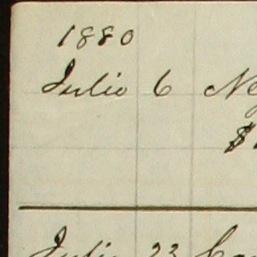 1880
Julio 6
$
Julio 23